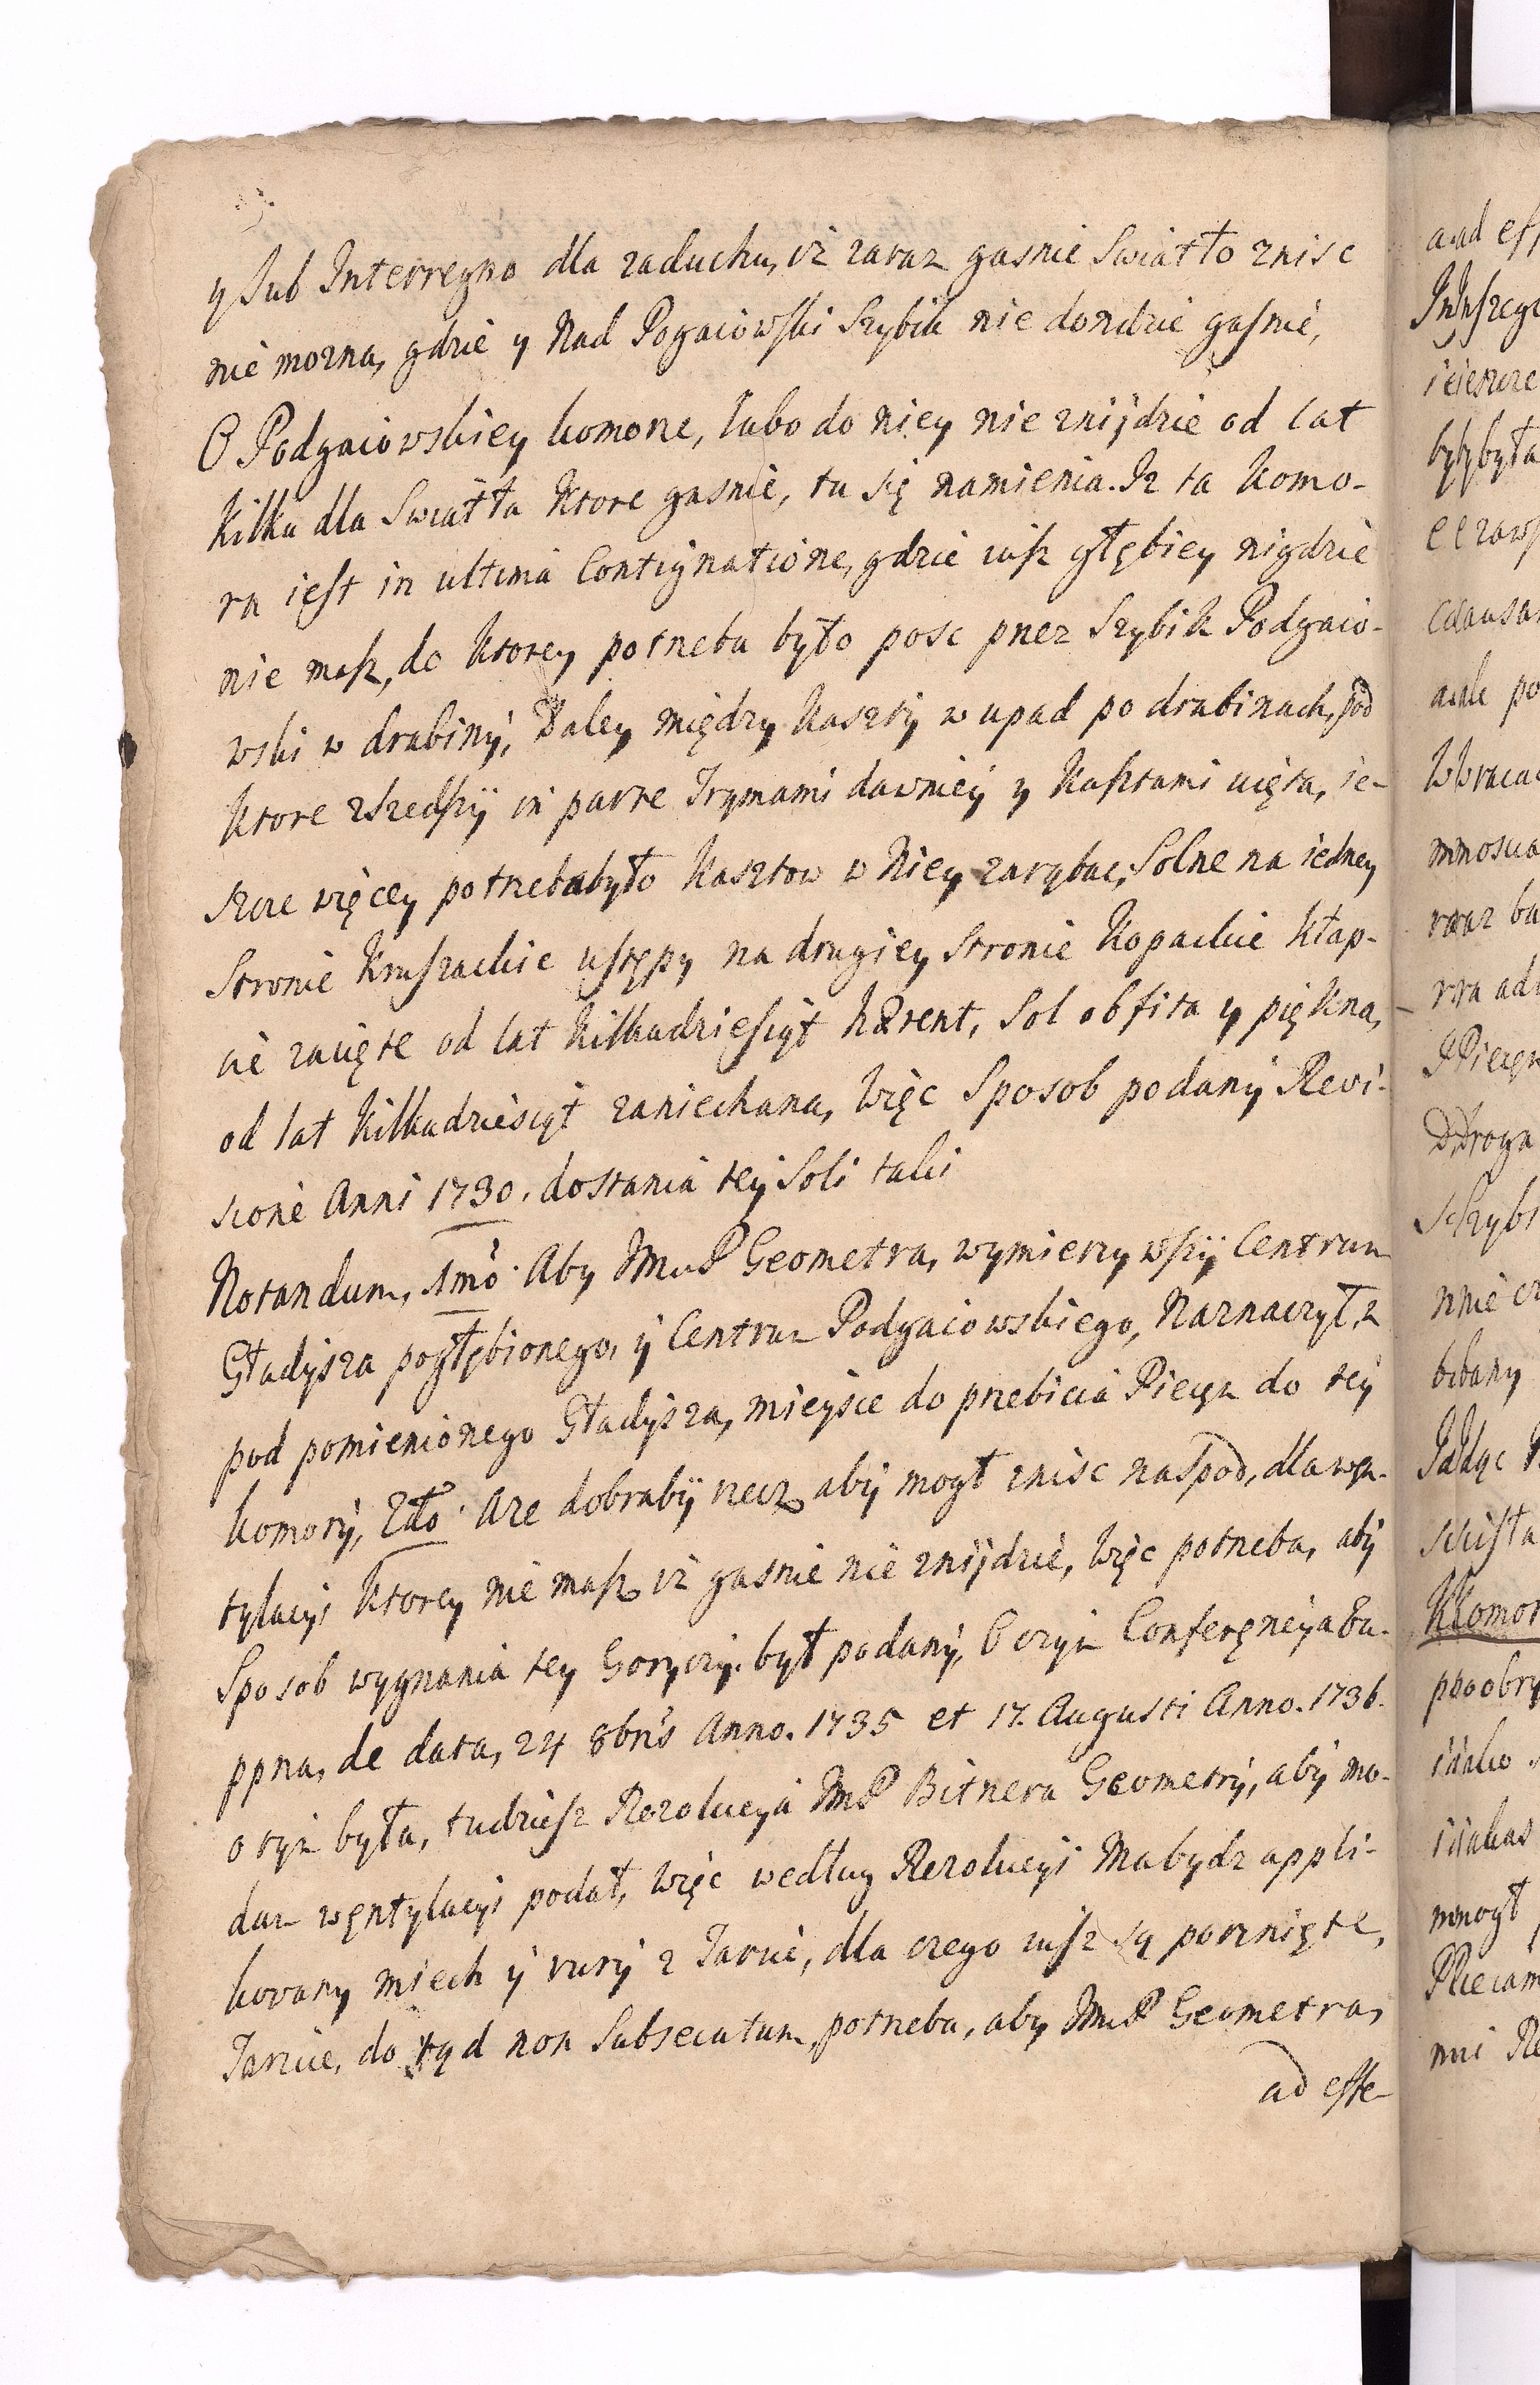 y sub Interregno dla zaduchu, iż zaraz gasnie Swiatło znisc
nie mozna, gdzie y Nad Pogaiowski Szybik nie dondzie gasnie,
O Podgaiowskiey komorze, lubo do niey nie znijdzie od lat
kilku dla Swiatła ktore gasnie, tu się namienia. Iz ta komo-
ra iest in ultima Contignatione, gdzie iusz głębiey nigdzie
nie masz, do ktorey potrzeba było posc przez Szybik Podgaio-
wski w drabiny, Daley między Kaszty w upad po drabinach, pod
ktore zszedszy in parte Trymami dawniey y Kasztami ujęta, ie-
szcze więcey potrzebabyło Kasztow w Niey zarąbac, Solne na iedney
Stronie Kruszackie ustępy na drugiey Stronie Kopackie Kłap-
cie zacięte od lat kilkudziesiąt hærent, Sol obfita y piękna,
od lat kilkudziesiąt zaniechana, Więc Sposob podany Revi-
sione Anni 1730. dostania tey Soli taki
Notandum, 1mò. Aby ImcP Geometra, wymierzywszy Centrum
Gładysza pogłębionego, y Centrum Podgaiowskiego, Naznaczył, z
pod pomienionego Gładysza, mieysce do przebicia Piecem do tey
komory, 2do. Aze dobraby rzecz aby mogł znisc naspod, dla węn-
tylacyi ktorey nie masz iż gasnie nie znijdzie, Więc potrzeba, aby
Sposob wygnania tey Goryczy był podany, O czym Conferęncya Zu-
ppna, de data, 24 8bris Anno. 1735 et 17. Augusti Anno. 1736.
o tym była, tudziesz Rezolucya ImP Bitnera Geometry, aby mo-
dum węntylacyi podał, Więc według Rezolucyi Mabydz appli-
kovany miech y rury z Tarcic, dla czego iusz są porznięte,
Tarcice, do tąd non Subsecutum, potrzeba, aby ImcP Geometra,
ad effe-